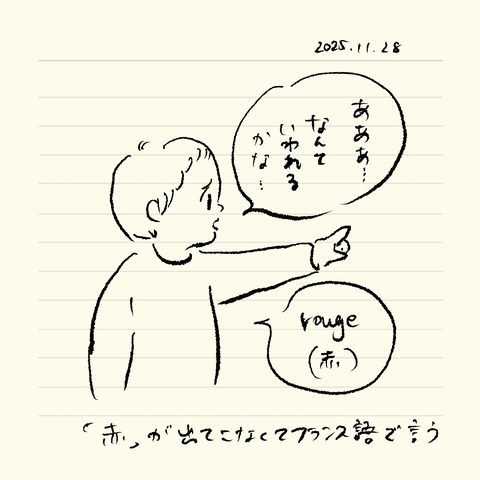 2025.11.28
あああ…
なんて
いわれる
かな…
rouge
(赤)
「赤」が出てこなくてフランス語で言う